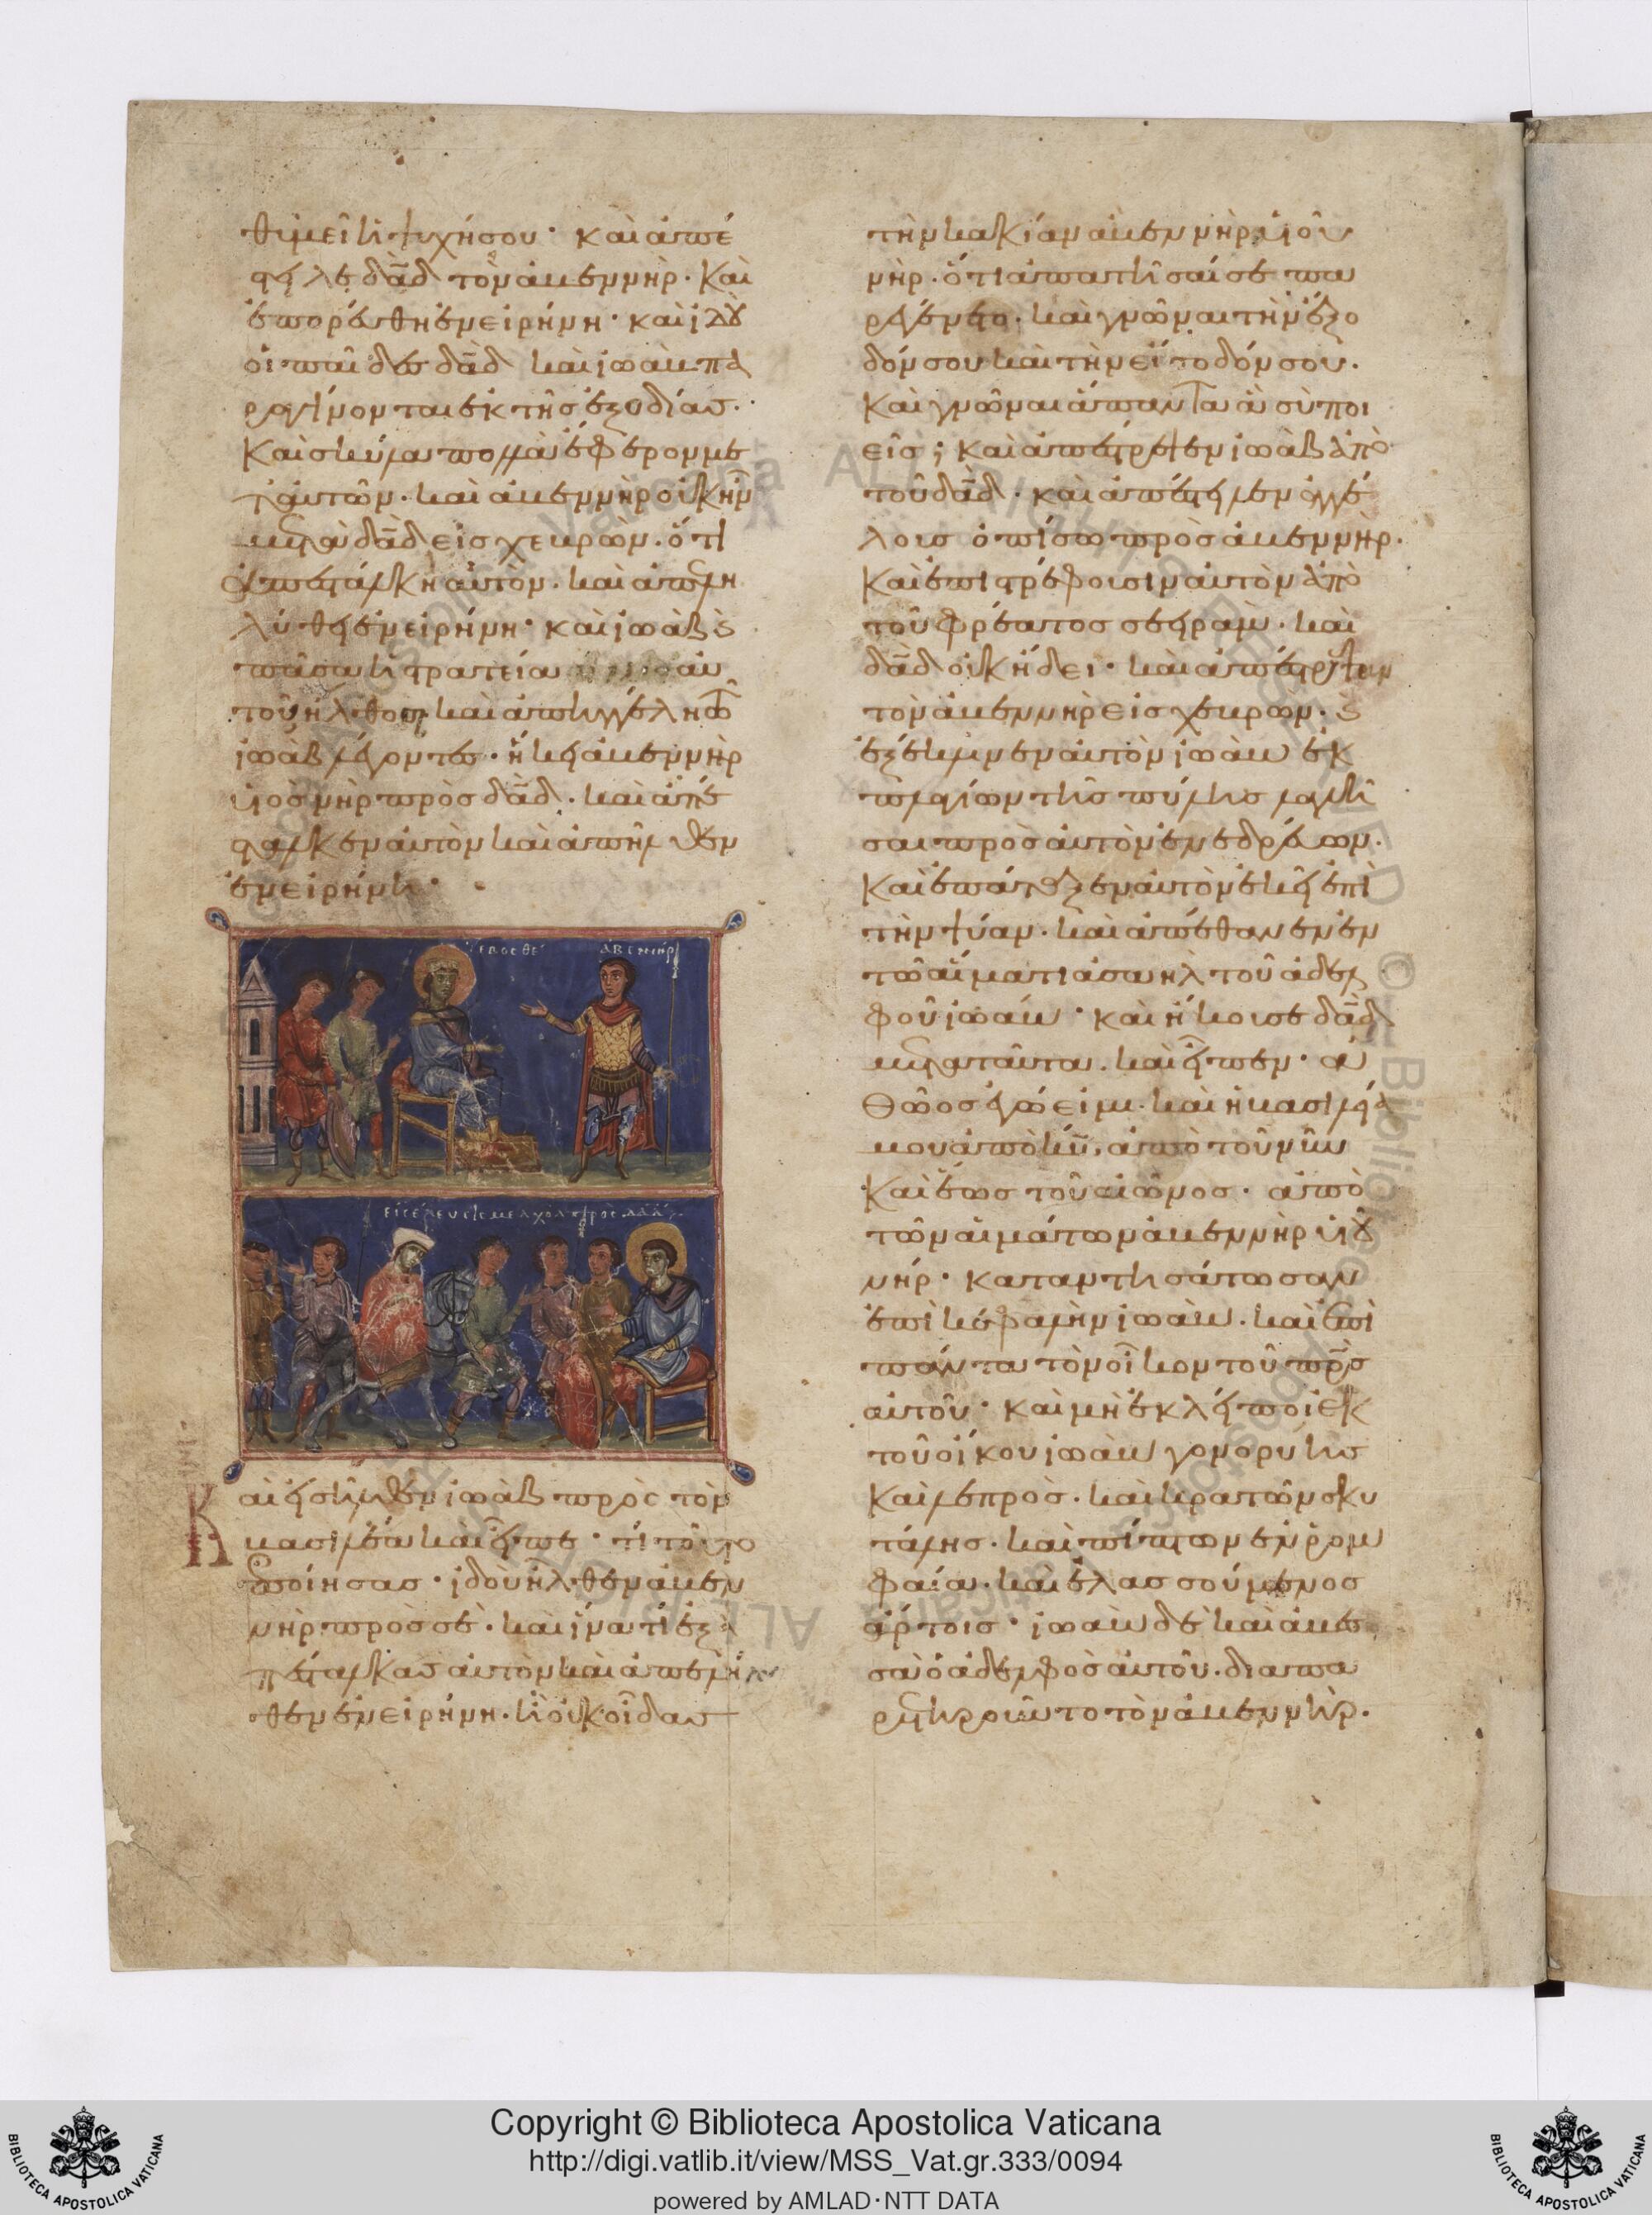 θυμεῖ ἡ ψυχή σου· καὶ ἀπέ
στειλε δα̅δ τὸν ἀβεννὴρ. καὶ
ἐπορεύθη ἐν εἰρήνη· καὶ ἰδοὺ
οἱ παῖδες δα̅δ καὶ ἰωὰβ πα
ραγίνονται ἐκ τῆς ἐξοδίας.
καὶ σκῦλα πολλὰ ἔφερον με
τ' αὐτῶν. καὶ ἀβεννὴρ οὐκ ἦν
μετὰ δα̅δ εἰς χεβρὼν. ὅτι
ἀπεστάλκει αὐτὸν. καὶ ἀπελη
λύθει ἐν εἰρήνη· καὶ ἰωὰβ καὶ
πᾶσα ἡ στρατεία αὐ
τοῦ ἤλθον καὶ ἀπηγγέλη τῶ
ἰωὰβ λέγοντες. ἥκει ἀβεννὴρ
υἱὸς νὴρ πρὸς δα̅δ. καὶ ἀπέ
σταλκεν αὐτὸν καὶ ἀπῆλθεν
ἐν εἰρήνη·
ἰεβοσθε ἀβεννήρ
εἰσέλευσις μελχολ πρὸς δα̅δ
Καὶ εἰσῆλθεν ἰωὰβ πρὸς τὸν
βασιλέα καὶ εἶπε· τί τοῦτο
ἐποίησας· ἰδοὺ ἦλθεν ἀβεν
νὴρ πρὸς σὲ. καὶ ἵνα τί ἐξα
πέσταλκας αὐτὸν καὶ ἀπελήλυ
θεν ἐν εἰρήνη. ἢ οὐκ οἶδας
τὴν κακίαν ἀβεννὴρ υἱοῦ
νὴρ. ὅτι ἀπατῆσαί σε πα
ρεγένετο. καὶ γνῶναι τὴν ἔξο
δόν σου καὶ τὴν εἴσοδόν σου.
καὶ γνῶναι ἅπαντα ἃ σὺ ποι
εῖς; καὶ ἀπέστρεψεν ἰωὰβ ἀπὸ
τοῦ δα̅δ. καὶ ἀπέστειλεν ἀγγέ
λους ὀπίσω πρὸς ἀβεννὴρ.
καὶ ἐπιστρέφουσιν αὐτὸν ἀπὸ
τοῦ φρέατος σεειράμ. καὶ
δα̅δ οὐκ ἤδει· καὶ ἀπέστρεψεν
τὸν ἀβεννὴρ εἰς χεβρων. καὶ
ἐξέκλινεν αὐτὸν ἰωὰβ ἐκ
πλαγίων τῆς πύλης λαλῆ
σαι πρὸς αὐτὸν ἐνεδρεύων.
καὶ ἐπάταξεν αὐτὸν ἐκεῖ ἐπὶ
τὴν ψύαν. καὶ ἀπέθανεν ἐν
τῶ αἵματι ἀσαὴλ τοῦ ἀδελ
φοῦ ἰωάβ· καὶ ἤκουσε δα̅δ
μετὰ ταῦτα. καὶ εἶπεν· ἀ
θῶος ἐγώ εἰμι. καὶ ἡ βασιλεία
μου ἀπὸ κυ̅, ἀπὸ τοῦ νῦν
καὶ ἕως τοῦ αἰῶνος. ἀπὸ
τῶν αἱμάτων ἀβεννὴρ υἱοῦ
νήρ· καταντησάτωσαν
ἐπὶ κεφαλὴν ἰωάβ. καὶ ἐπὶ
πάντα τὸν οἶκον τοῦ πρ̅ς
αὐτοῦ· καὶ μὴ ἐκλείποι ἐκ
τοῦ οἴκου ἰωὰβ γονορυὴς
καὶ λεπρὸς. καὶ κρατῶν σκυ
τάλης. καὶ πίπτων ἐν ῥομ
φαία. καὶ ἐλασσούμενος
ἄρτοις· ἰωὰβ δὲ καὶ ἀβεσ
σὰ ὁ ἀδελφὸς αὐτοῦ. διαπα
ρετηροῦντο τὸν ἀβεννὴρ.
Copyright © Biblioteca Apostolica Vaticana
http://digi.vatlib.it/view/MSS_Vat.gr.333/0094
powered by AMLAD·NTT DATA
BIBLIOTECA APOSTOLICA VATICANA
BIBLIOTECA APOSTOLICA VATICANA